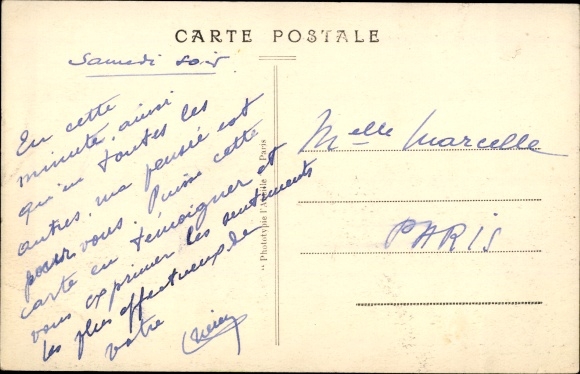 CARTE POSTALE
Samedi soir
En cette
minute, ainsi
qu'en toutes les
autres, ma pensée est
pour vous. Puisse cette
carte en témoigner et
vous exprimer les sentiments
les plus affectueux de
votre
Melle Marcelle
PARIS
"Phototypie l'Abeille" Paris